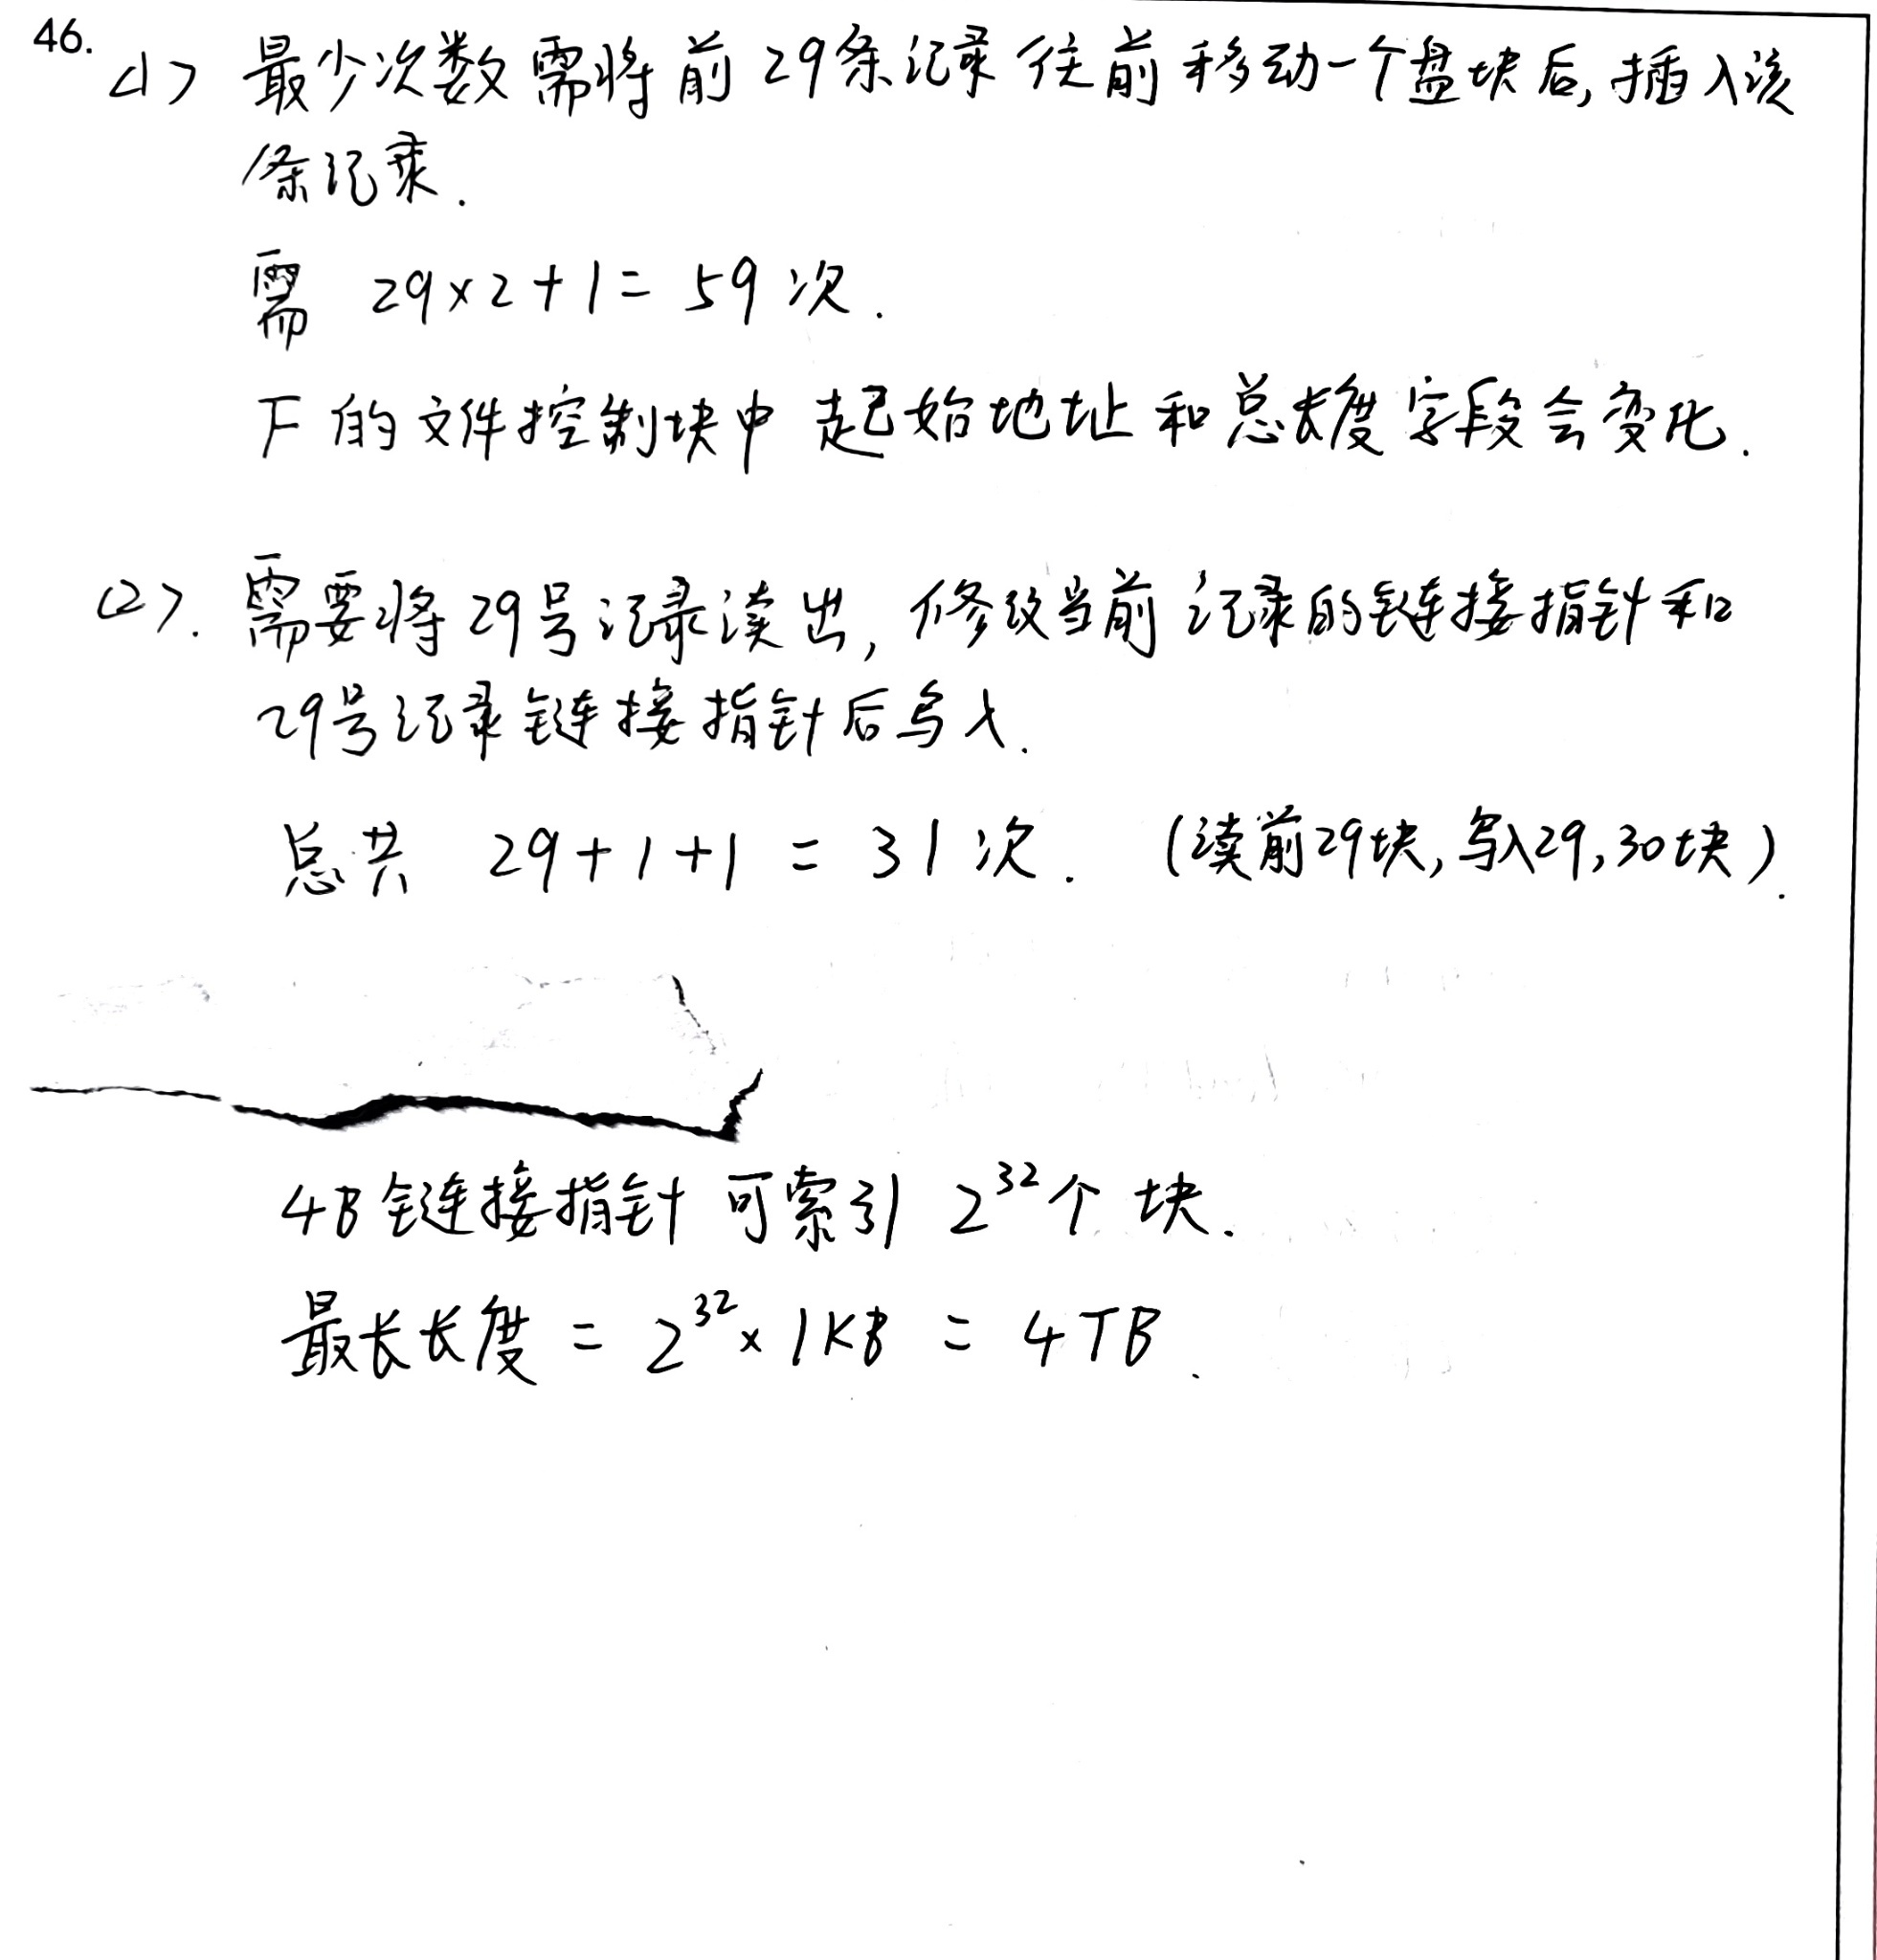 46.
(1) 最少次数需将前29条记录往前移动一个盘块后,插入该
条记录.
需 29×2+1= 59次.
F的文件控制块中起始地址和总长度字段会变化.
(2). 需要将29号记录读出,修改当前记录的链接指针和
29号记录链接指针后写入.
总共 29+1+1 = 31次. (读前29块,写入29,30块).
4B链接指针可索引 2³²个块.
最长长度 = 2³²×1KB = 4TB.